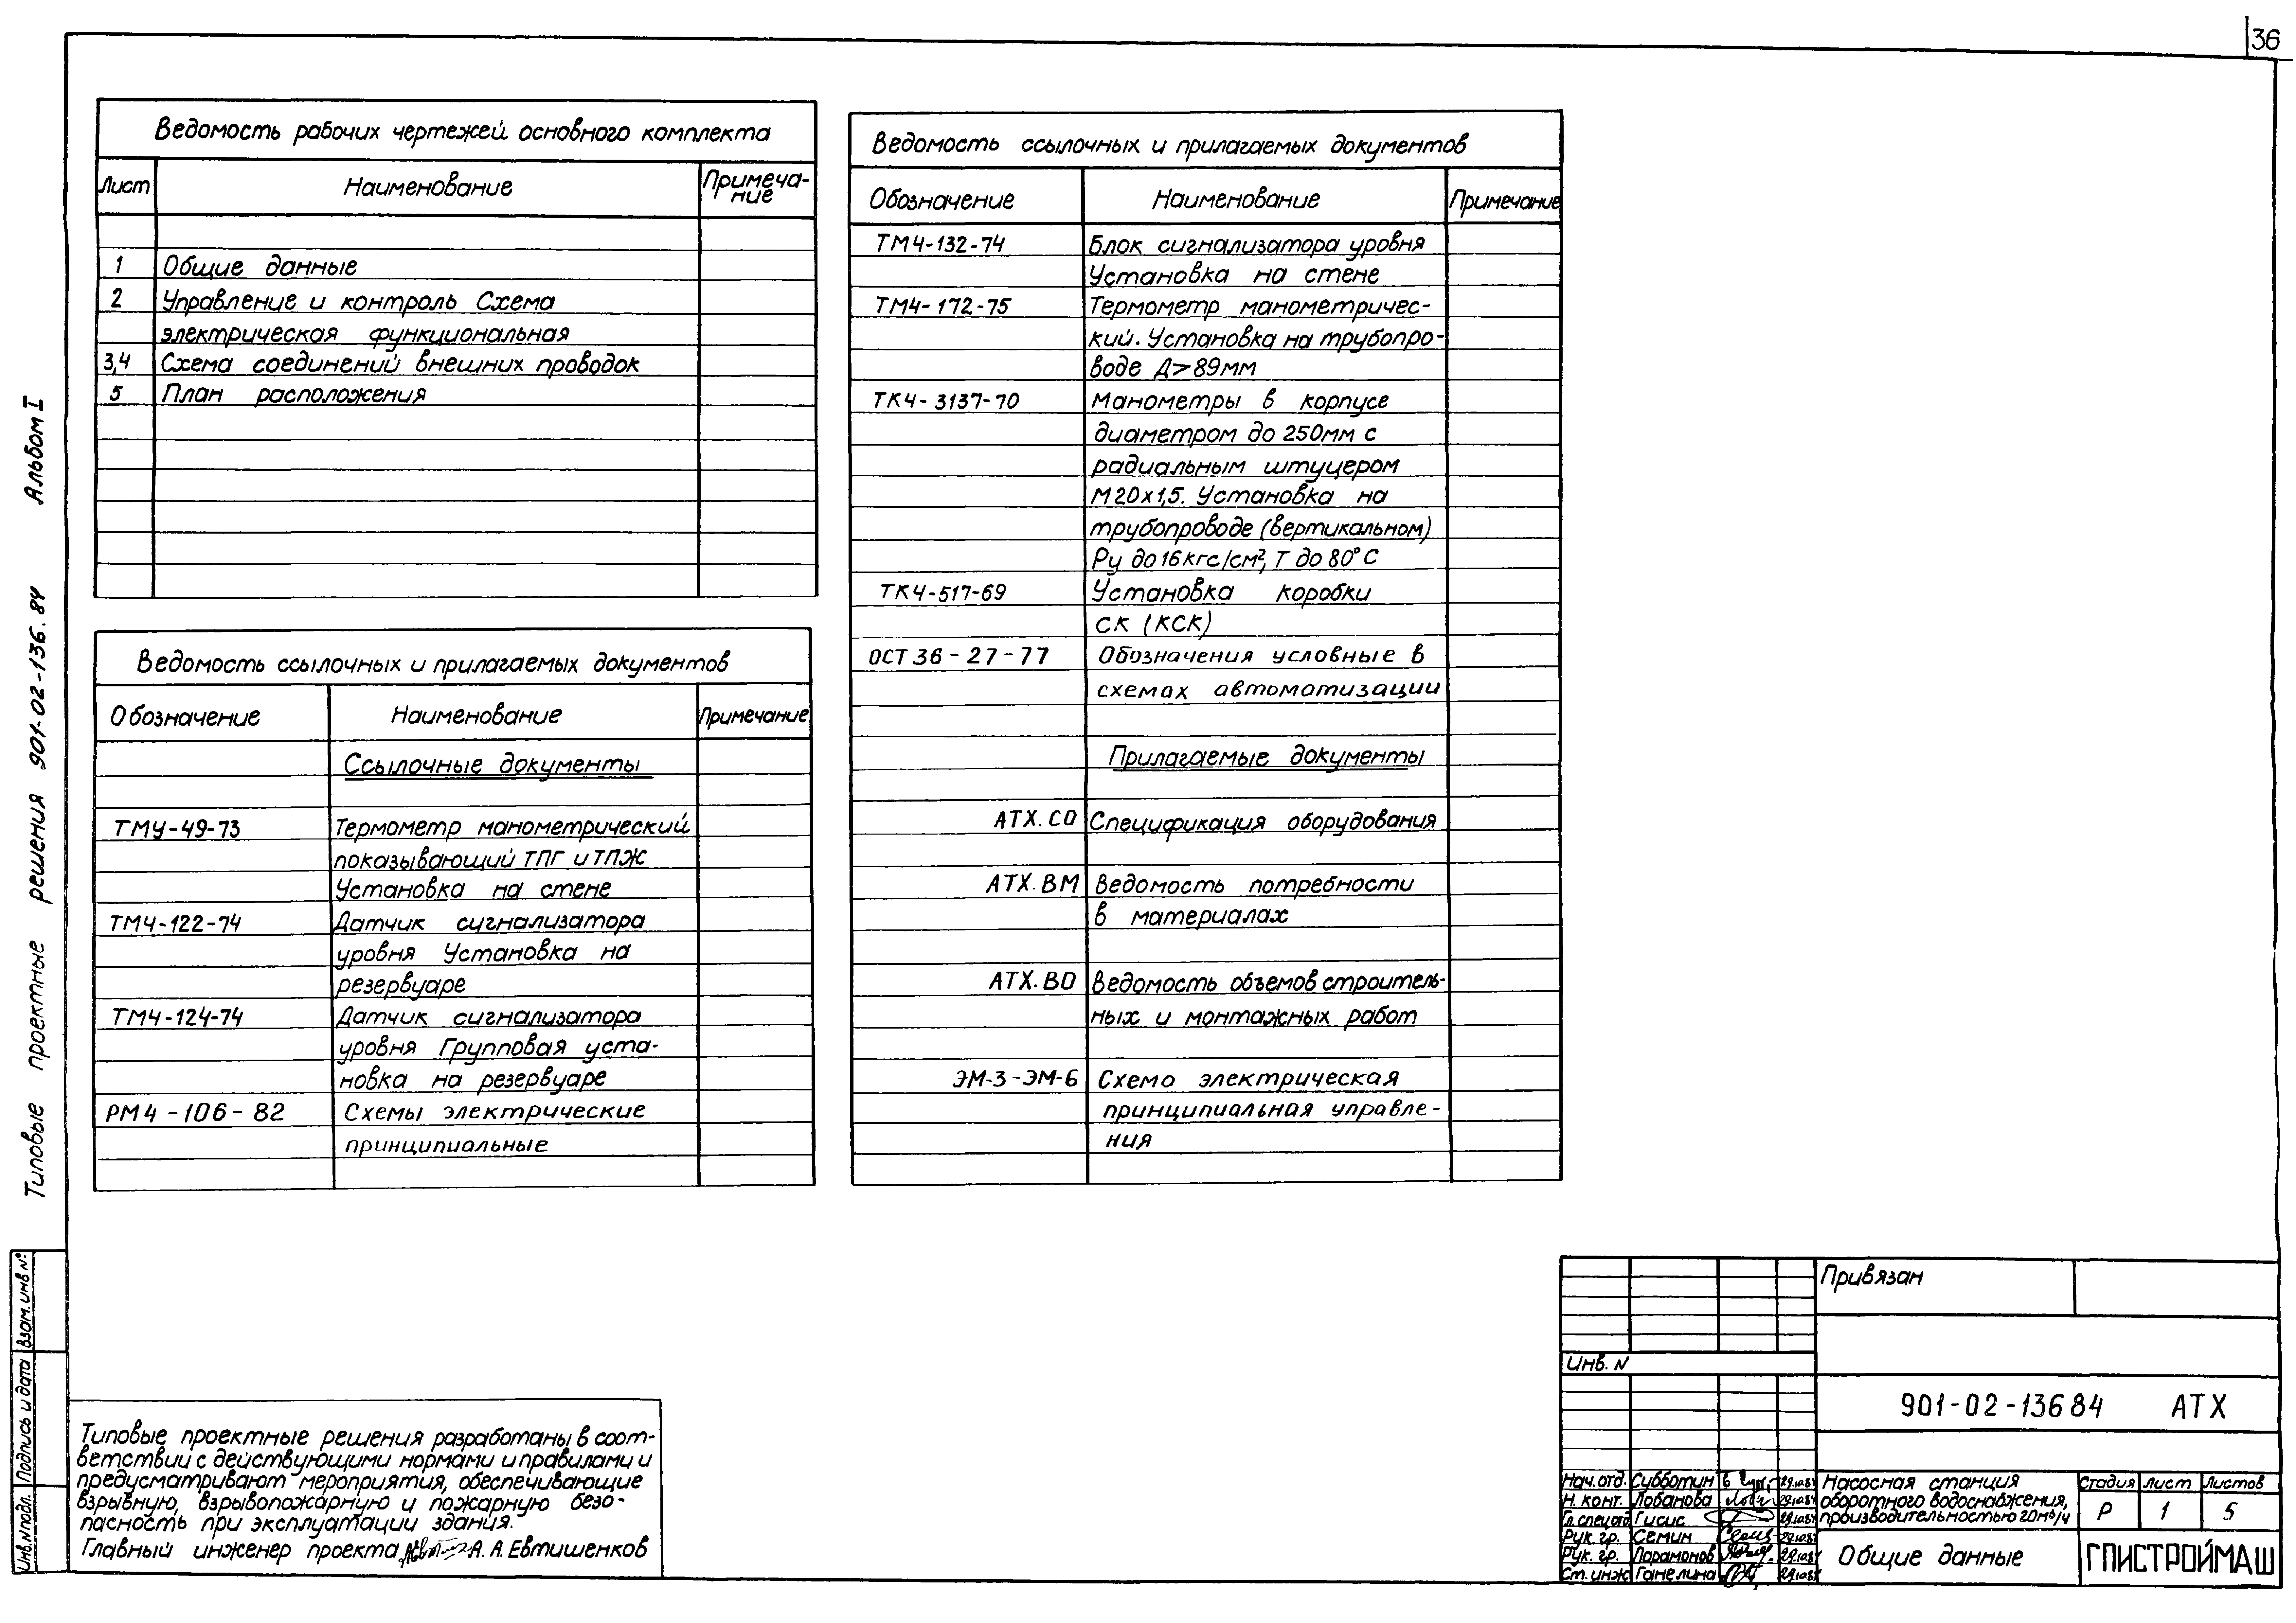 36
Альбом I
Типовые проектные решения 901-02-136.84
Ведомость рабочих чертежей основного комплекта
Лист Наименование Примеча-
ние
1 Общие данные
2 Управление и контроль Схема
электрическая функциональная
3,4 Схема соединений внешних проводок
5 План расположения
Ведомость ссылочных и прилагаемых документов
Обозначение Наименование Примечание
Ссылочные документы
ТМ4-49-73 Термометр манометрический
показывающий ТПГ и ТПЖ
Установка на стене
ТМ4-122-74 Датчик сигнализатора
уровня Установка на
резервуаре
ТМ4-124-74 Датчик сигнализатора
уровня Групповая уста-
новка на резервуаре
РМ4-106-82 Схемы электрические
принципиальные
Ведомость ссылочных и прилагаемых документов
Обозначение Наименование Примечание
ТМ4-132-74 Блок сигнализатора уровня
Установка на стене
ТМ4-172-75 Термометр манометричес-
кий. Установка на трубопро-
воде Д>89мм
ТК4-3137-70 Манометры в корпусе
диаметром до 250мм с
радиальным штуцером
М20х1,5. Установка на
трубопроводе (вертикальном)
Ру до 16кгс/см², Т до 80°С
ТК4-517-69 Установка коробки
СК (КСК)
ОСТ 36-27-77 Обозначения условные в
схемах автоматизации
Прилагаемые документы
АТХ.СО Спецификация оборудования
АТХ.ВМ Ведомость потребности
в материалах
АТХ.ВО Ведомость объемов строитель-
ных и монтажных работ
ЭМ-3-ЭМ-6 Схема электрическая
принципиальная управле-
ния
Взам. инв №
Подпись и дата
Инв. N подл.
Типовые проектные решения разработаны в соот-
ветствии с действующими нормами и правилами и
предусматривают мероприятия, обеспечивающие
взрывную, взрывопожарную и пожарную безо-
пасность при эксплуатации здания.
Главный инженер проекта А. А. Евтишенков
Привязан
Инв. N
901-02-136 84 АТХ
Нач. отд. Субботин 29.10.84
Н. конт. Лобанова 29.10.84
Гл. спец отд Гисис 29.10.84
Рук. гр. Семин 29.10.84
Рук. гр. Парамонов 29.10.84
Ст. инж Ганелина 29.10.84
Насосная станция
оборотного водоснабжения,
производительностью 20м³/ч
Стадия Лист Листов
Р 1 5
Общие данные
ГПИСТРОЙМАШ